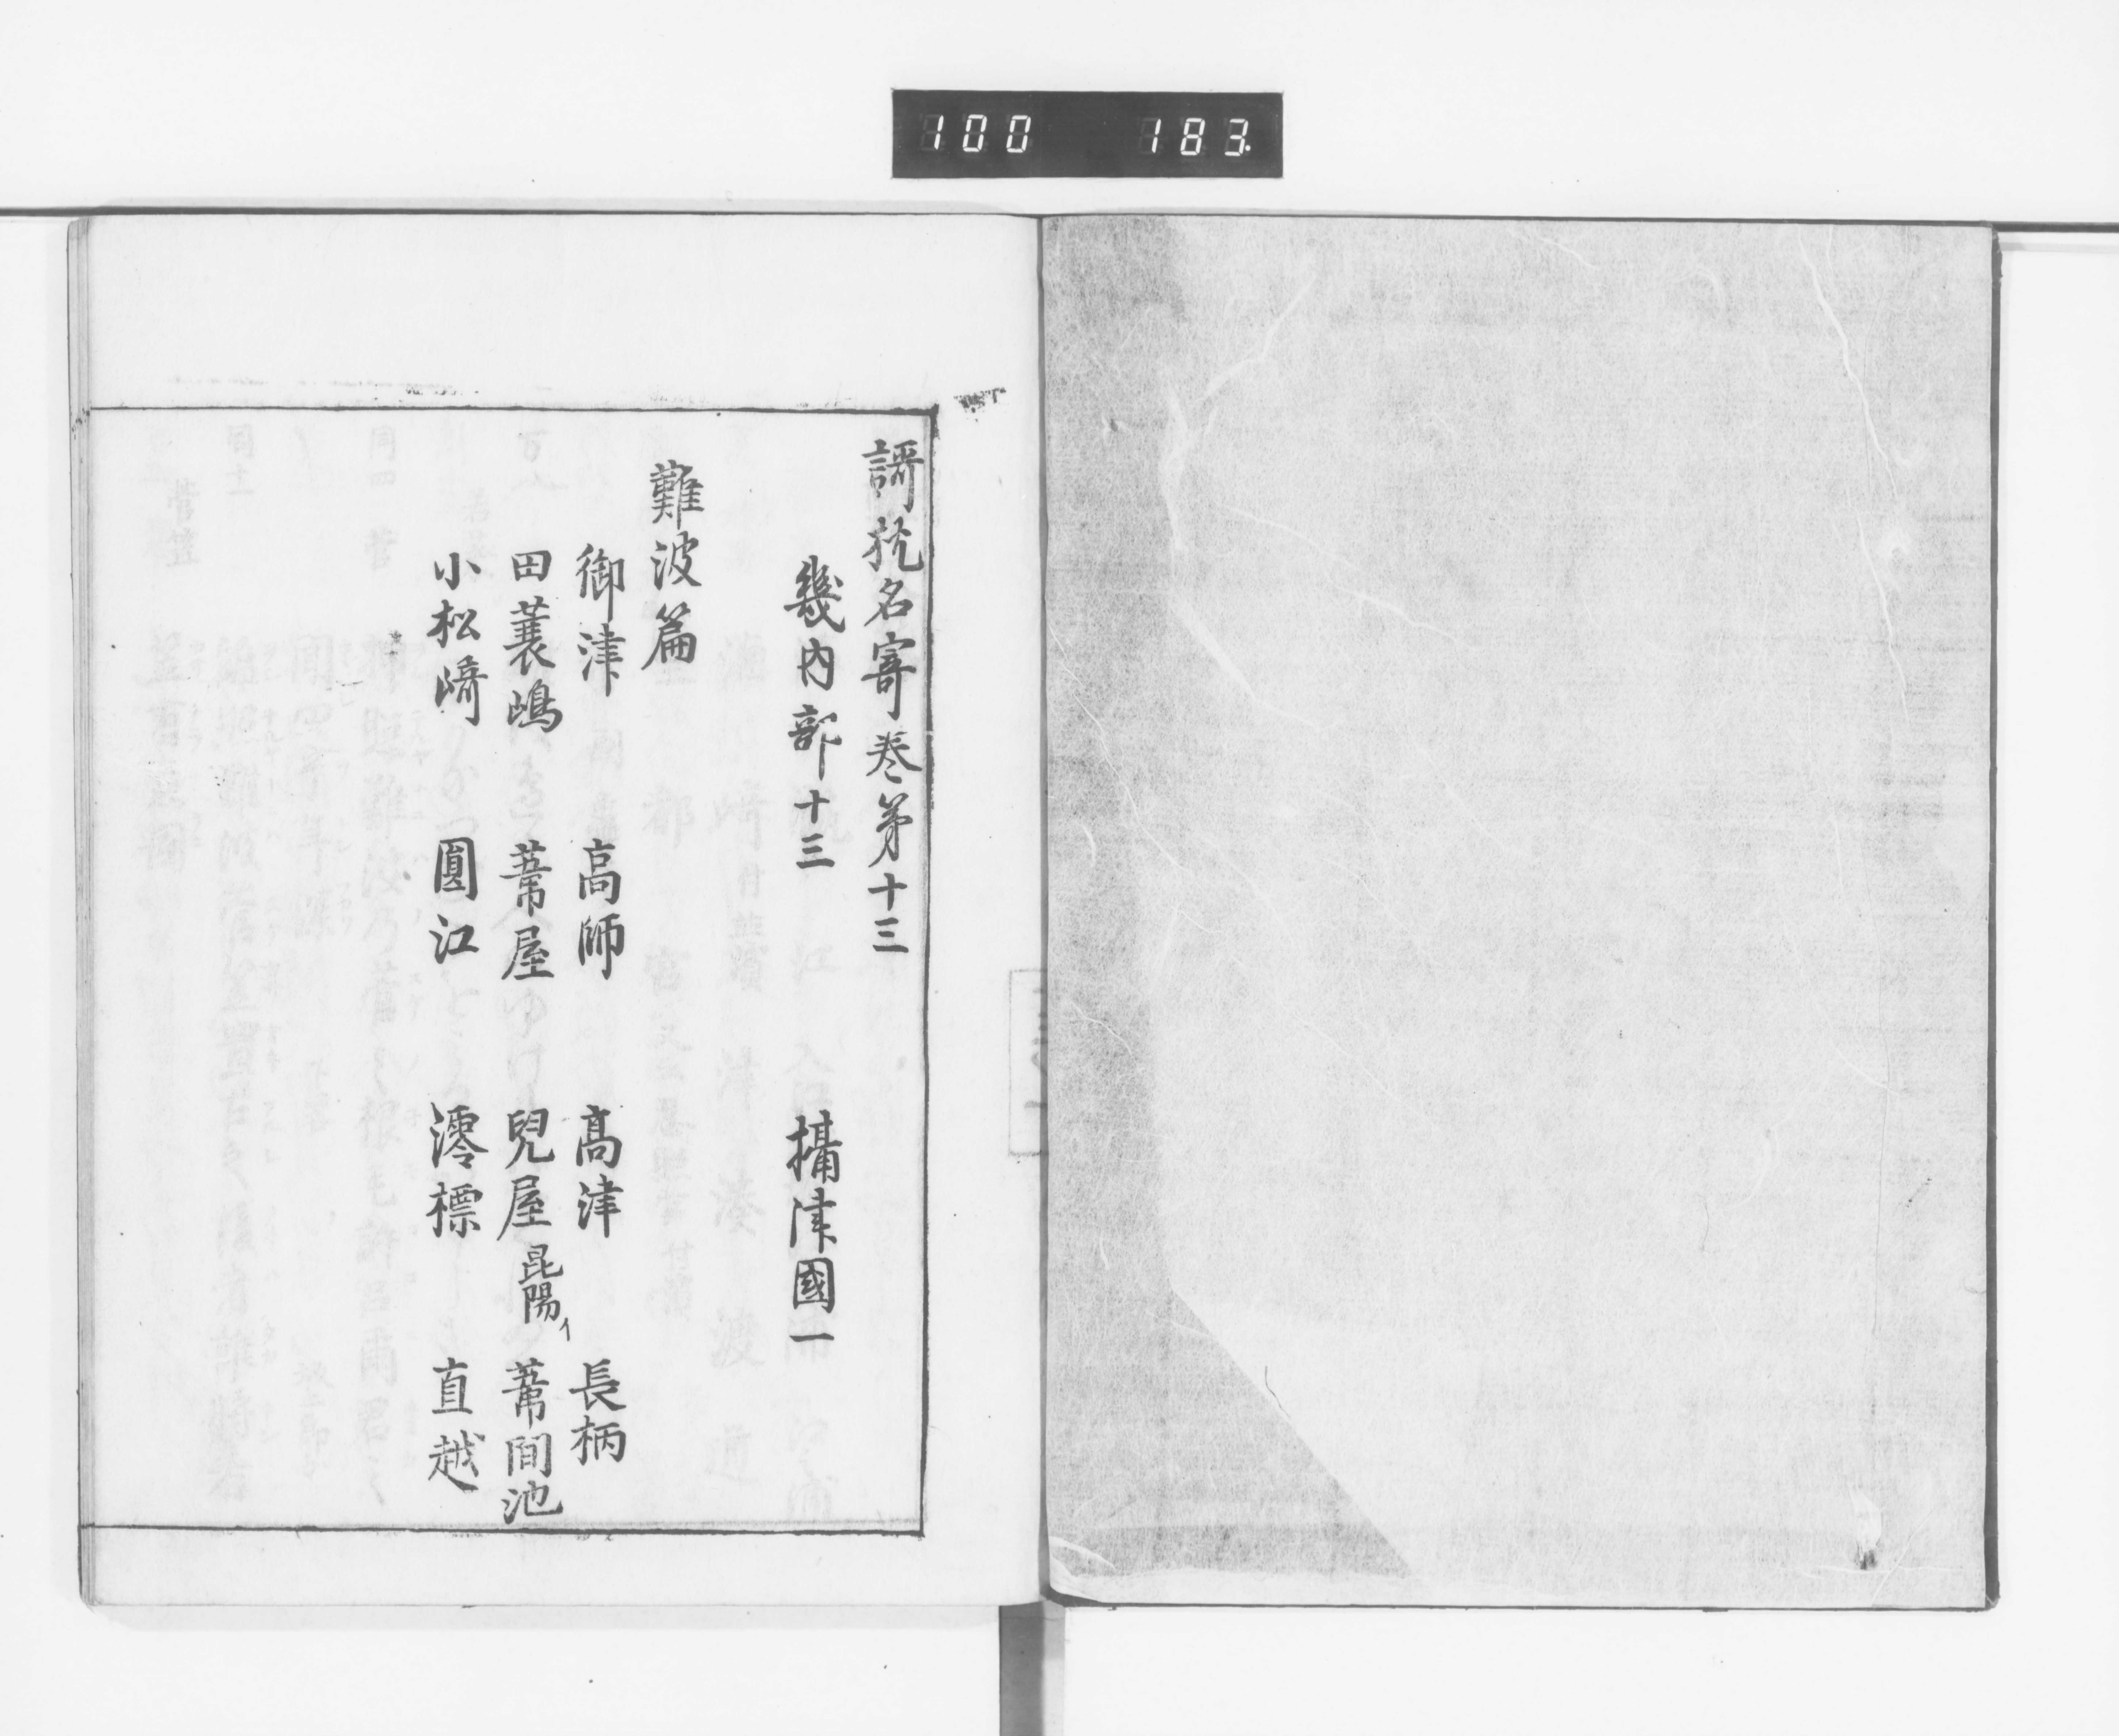 100 183.
謌枕名寄巻第十三
幾内部十三 攝津國一
難波篇
御津 高師 高津 長柄
田蓑嶋 葦屋 兒屋 昆陽イ 葦間池
小松﨑 圓江 澪標 直越